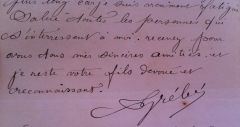 plus long car je suis vraiment fatigué
Saluez toutes les personnes qui
s'intéressent à moi. recevez pour
vous tous mes sincères amitiés. et
je reste votre fils dévoué et
reconnaissant.